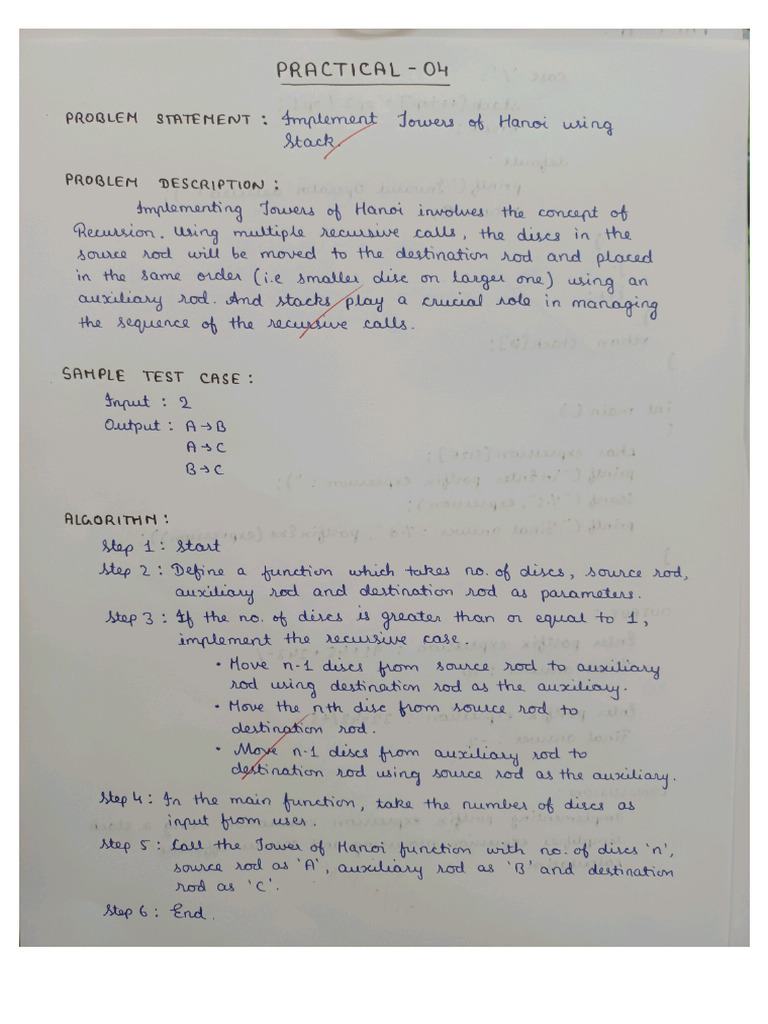 PRACTICAL - 04
PROBLEM STATEMENT : Implement Towers of Hanoi using
Stack.
PROBLEM DESCRIPTION :
Implementing Towers of Hanoi involves the concept of
Recursion. Using multiple recursive calls, the discs in the
source rod will be moved to the destination rod and placed
in the same order (i.e smaller disc on larger one) using an
auxiliary rod. And stacks play a crucial role in managing
the sequence of the recursive calls.
SAMPLE TEST CASE :
Input : 2
Output : A → B
A → C
B → C
ALGORITHM :
Step 1 : Start
Step 2 : Define a function which takes no. of discs, source rod,
auxiliary rod and destination rod as parameters.
Step 3 : If the no. of discs is greater than or equal to 1,
implement the recursive case.
• Move n-1 discs from source rod to auxiliary
rod using destination rod as the auxiliary.
• Move the nth disc from source rod to
destination rod.
• Move n-1 discs from auxiliary rod to
destination rod using source rod as the auxiliary.
Step 4 : In the main function, take the number of discs as
input from user.
Step 5 : Call the Tower of Hanoi function with no. of discs 'n',
source rod as 'A', auxiliary rod as 'B' and destination
rod as 'C'.
Step 6 : End.